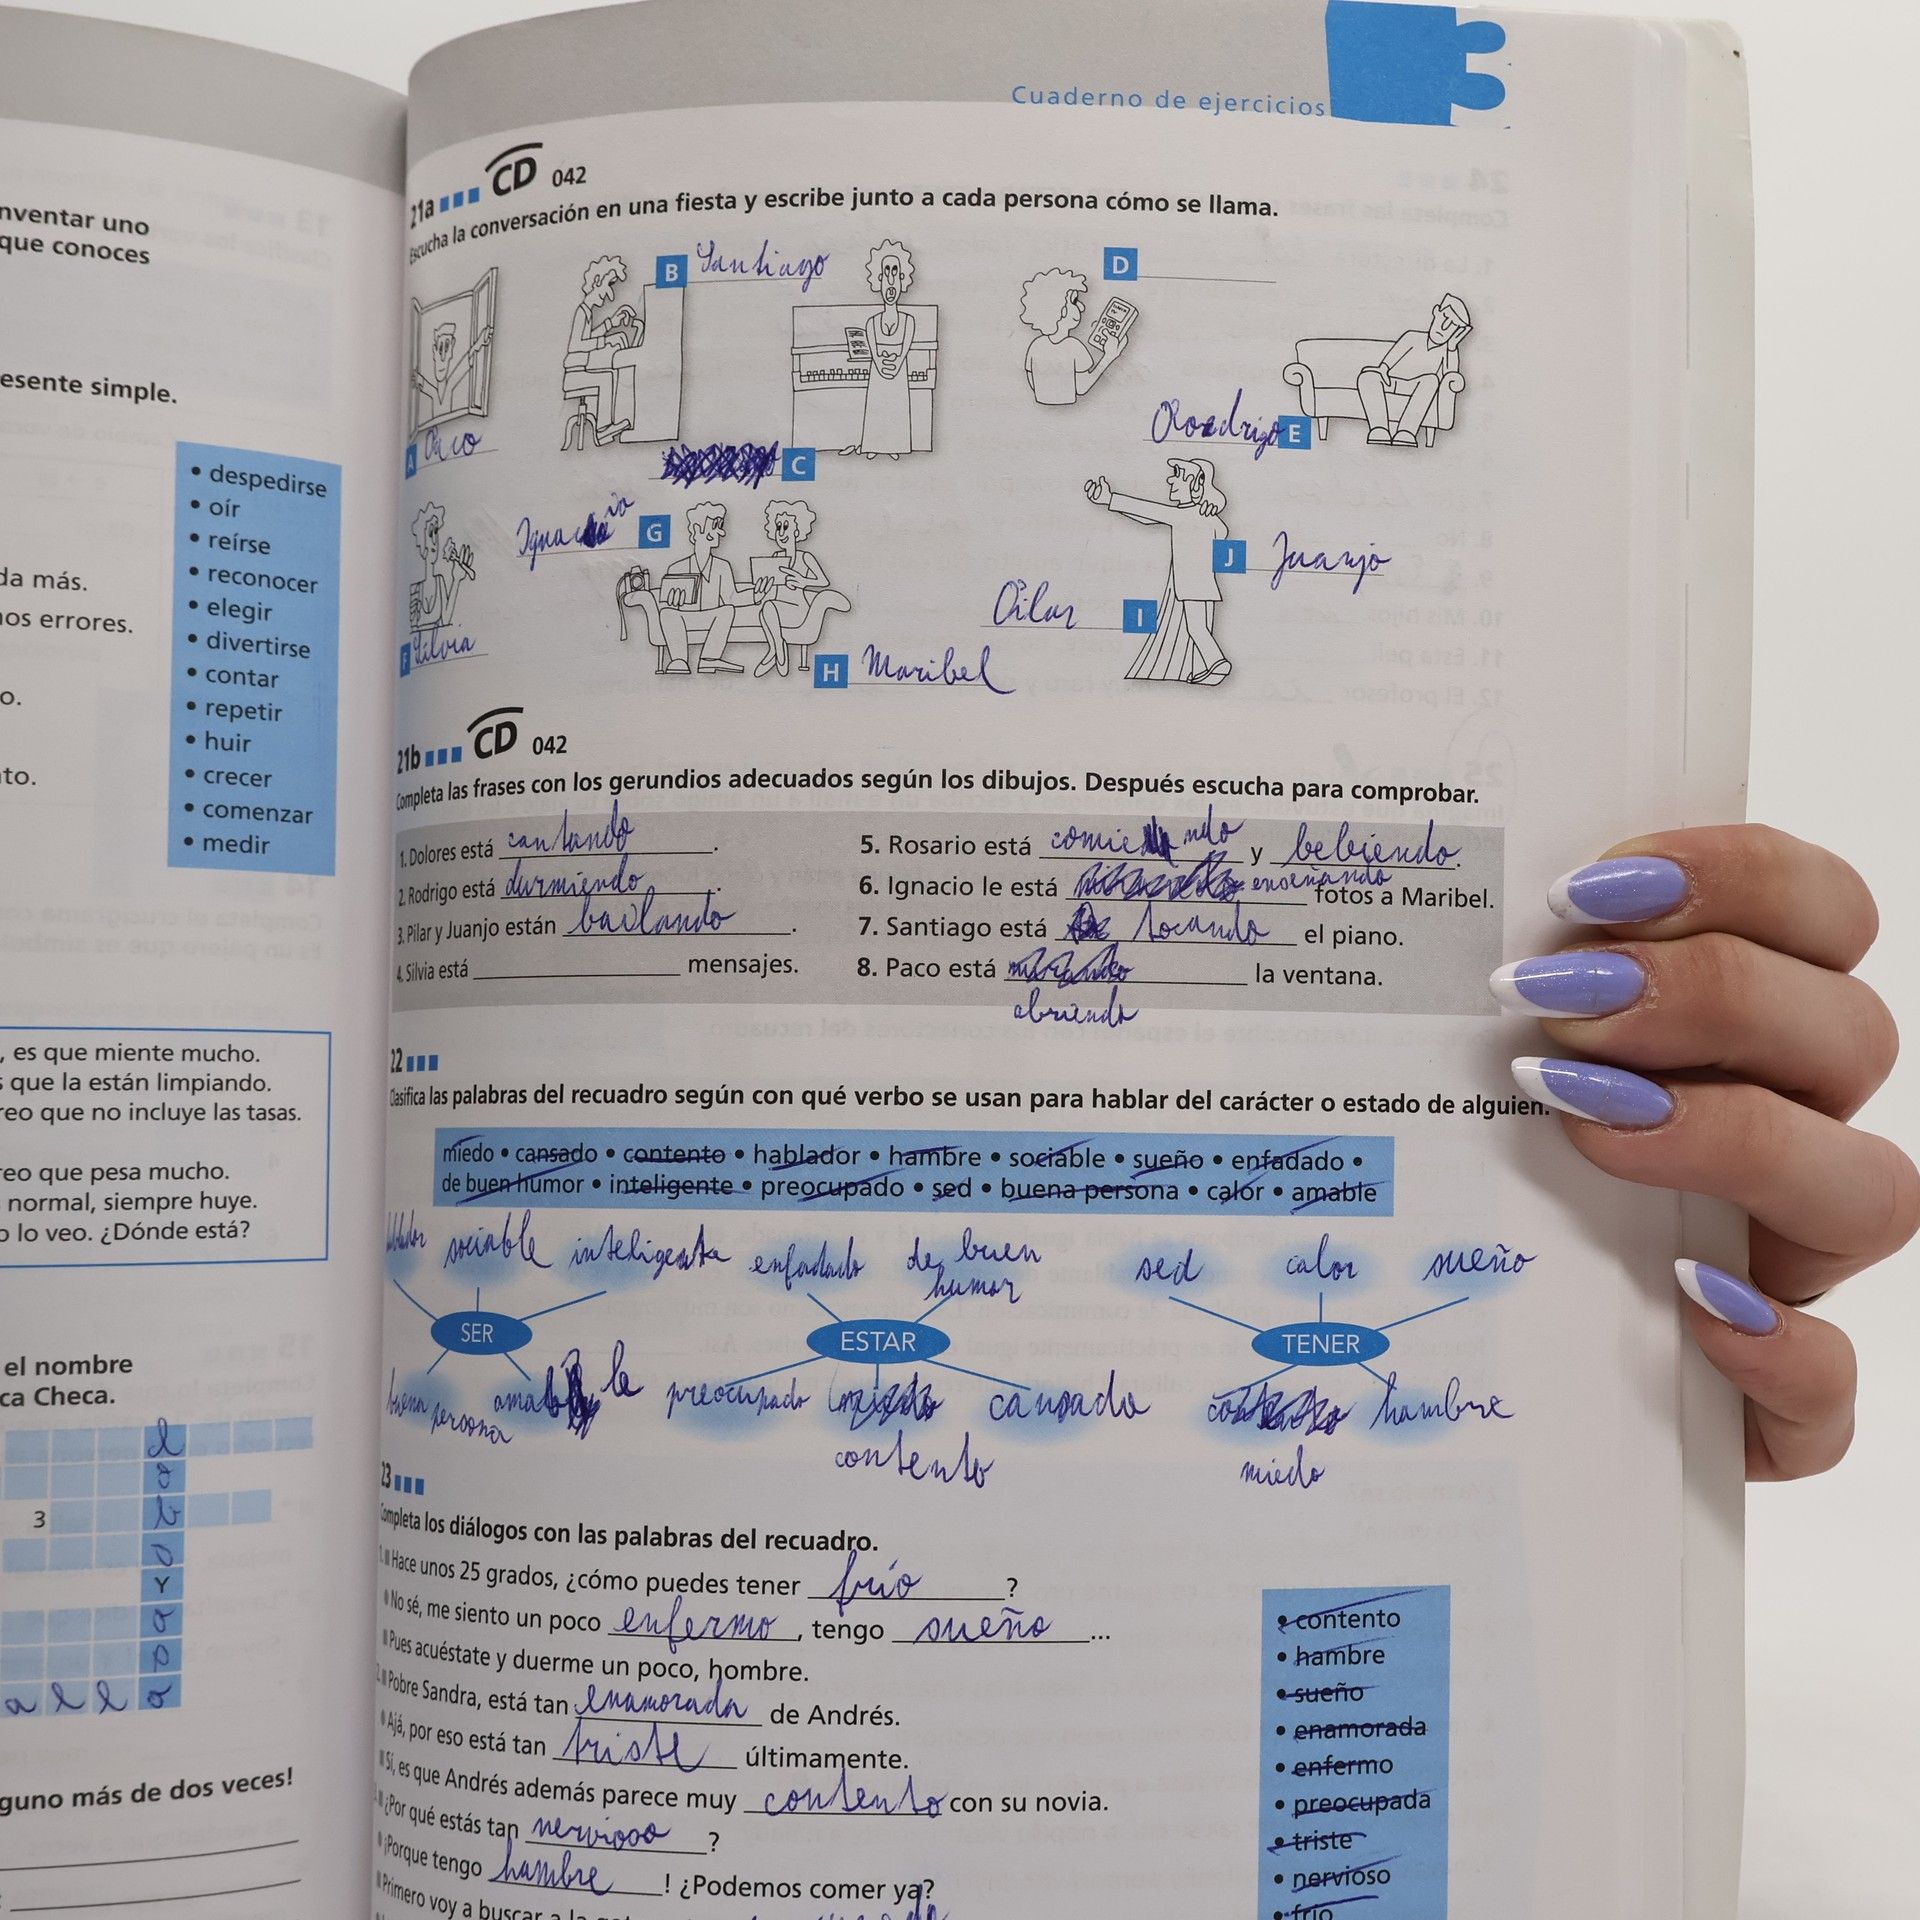 Cuaderno de ejercicios
nventar uno
que conoces
esente simple.
• despedirse
• oír
• reírse
• reconocer
• elegir
• divertirse
• contar
• repetir
• huir
• crecer
• comenzar
• medir
da más.
nos errores.
o.
nto.
, es que miente mucho.
s que la están limpiando.
reo que no incluye las tasas.
reo que pesa mucho.
normal, siempre huye.
o lo veo. ¿Dónde está?
el nombre
ca Checa.
3
a l l
guno más de dos veces!
21a CD 042
Escucha la conversación en una fiesta y escribe junto a cada persona cómo se llama.
A Paco
B Santiago
C
D
Rodrigo E
F Silvia
Ignacio G
H Maribel
Pilar I
J Juanjo
21b CD 042
Completa las frases con los gerundios adecuados según los dibujos. Después escucha para comprobar.
1. Dolores está cantando.
2. Rodrigo está durmiendo.
3. Pilar y Juanjo están bailando.
4. Silvia está ____ mensajes.
5. Rosario está comiendo y bebiendo.
6. Ignacio le está enseñando fotos a Maribel.
7. Santiago está tocando el piano.
8. Paco está ____ la ventana.
abriendo
22
Clasifica las palabras del recuadro según con qué verbo se usan para hablar del carácter o estado de alguien.
miedo • cansado • contento • hablador • hambre • sociable • sueño • enfadado •
de buen humor • inteligente • preocupado • sed • buena persona • calor • amable
hablador sociable inteligente enfadado de buen humor sed calor sueño
SER ESTAR TENER
buena persona amable preocupado cansado hambre
contento miedo
23
Completa los diálogos con las palabras del recuadro.
1. Hace unos 25 grados, ¿cómo puedes tener frío?
No sé, me siento un poco enfermo, tengo sueño...
Pues acuéstate y duerme un poco, hombre.
2. Pobre Sandra, está tan enamorada de Andrés.
Ajá, por eso está tan triste últimamente.
Sí, es que Andrés además parece muy contento con su novia.
¿Por qué estás tan nervioso?
¡Porque tengo hambre! ¿Podemos comer ya?
Primero voy a buscar a la
• contento
• hambre
• sueño
• enamorada
• enfermo
• preocupada
• triste
• nervioso
• frío